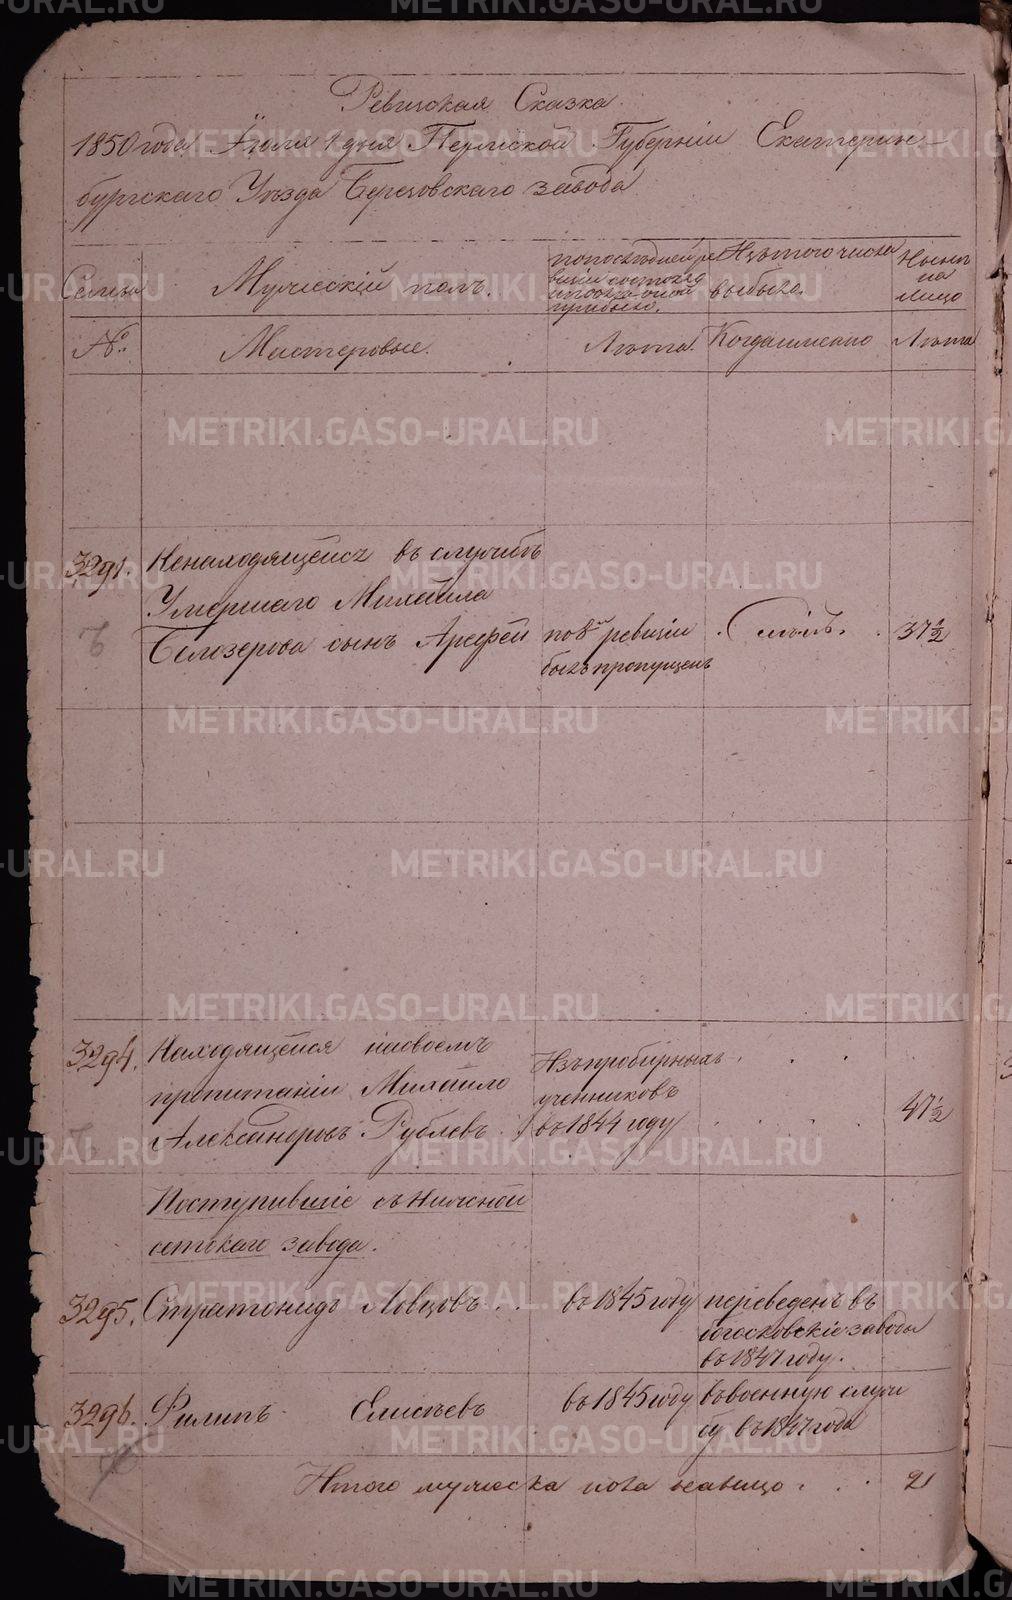 Ревизская Сказка.
1850 года Июля 1 дня Пермской Губерніи Екатерин-
бургскаго Уѣзда Березовскаго завода
Семьи
Мужескій полъ.
по последней ре
визіи состояло
и после оной
прибыло.
Изъ того числа
выбыло.
Нынѣ
на
лицо
№.
Мастеровые.
Лѣта.
Когда именно
Лѣта
3291.
Ненаходящейся въ службѣ
Умершаго Михайла
Белозерова сынъ Арефей
по 8й ревизіи
былъ пропущенъ
37½
3294.
Находящейся на своемъ
пропитаніи Михайло
Александровъ Рублевъ
Изъ пробирныхъ
учениковъ
въ 1844 году
47½
Поступившіе съ Нижнеи
сетскаго завода.
3295.
Стратонидъ Ловцовъ
въ 1845 году
переведенъ въ
богословскіе заводы
въ 1847 году.
3296.
Филипъ Елисѣевъ
въ 1845 году
въ военную служ
бу въ 1847 года
Итого мужеска пола налицо
2
METRIKI.GASO-URAL.RU